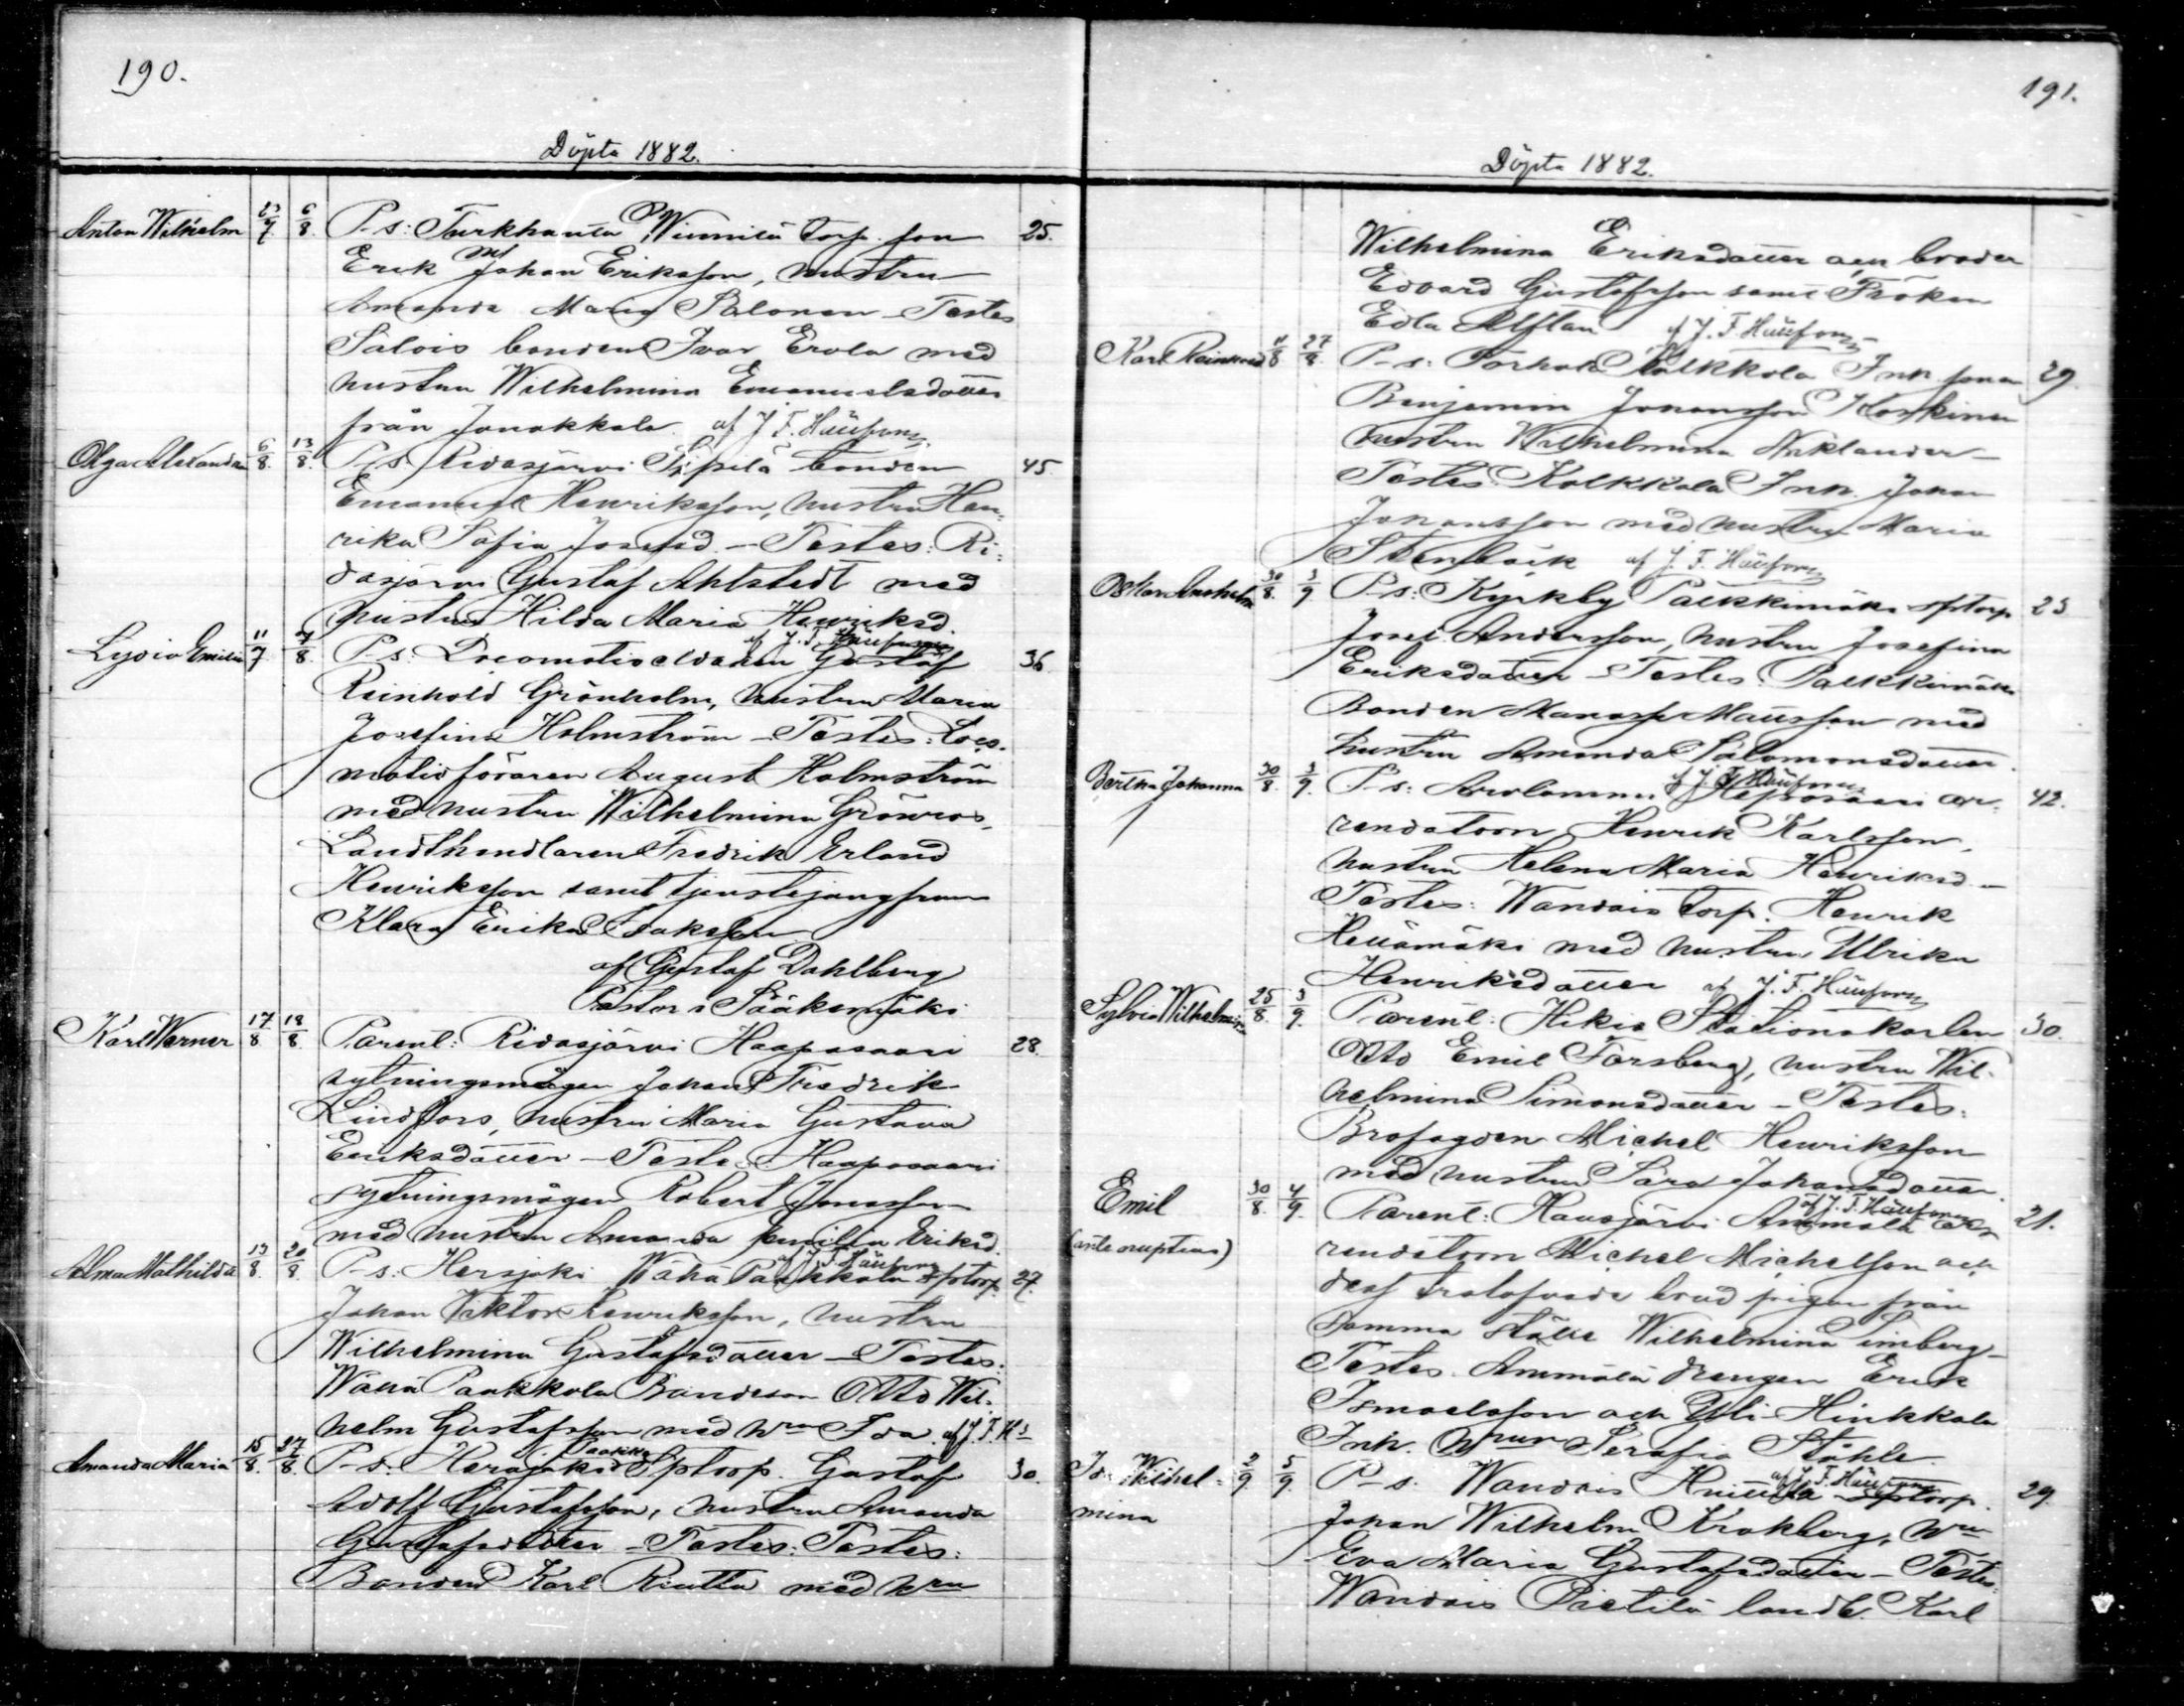 190.
Döpta 1882.
Anton Wilhelm 23/7 6/8 P-s: Turkhauta Winnilä torp. son 25.
Erik Johan Eriksson, hustru
Amanda Maria Salonen - Testes
Salois bonden Ivar Erola med
hustru Wilhelmina Emanuelsdotter
från Janakkala. af J. F.
Olga Alexandra 6/8 13/8 P-s. Ridasjärvi Sipilä bonden 45.
Emanuel Henriksson, hustru Hen-
rika Sofia Josefsd. - Testes: Ri-
dasjärvi Gustaf Ahlstedt med
hustru Hilda Maria Henriksd.
af J. F.
Lydia Emilia 11/7 7/8 P-s. Locomotiv Gustaf 36.
Reinhold Grönholm, hustru Maria
Josefina Holmström - Testes: Loco-
motivföraren August Holmström
med hustru Wilhelmina Grönroos,
Landthandlaren Fredrik Erland
Henriksson samt tjenstejungfrun
Klara Erika Isaksson
af Gustaf Dahlberg
Pastor i Sääksmäki
Karl Werner 17/8 18/8 Parent: Ridasjärvi Haapasaari 28.
sytningsmågen Johan Fredrik
Lindfors, hustru Maria Gustava
Eriksdotter - Testes: Haapasaari
sytningsmågen Robert Jonasson
med hustru Amanda Emilia Eriksd.
af J. F.
Alma Mathilda 13/8 20/8 P-s. Herajoki Wähä Paakkola sptorp. 27.
Johan Viktor Henriksson, hustru
Wilhelmina Gustafsdotter - Testes:
Wähä Paakkola Bondeson Otto Wil-
helm Gustafsson med hru Ida. af J. F. H-s
Amanda Maria 15/8 27/8 P-s. Herajoki Paakkola Sptorp. Gustaf 30.
Adolf Gustafsson, hustru Amanda
Gustafsdotter - Testes: Testes:
Bonden Karl Riutta med hru
191.
Döpta 1882.
Wilhelmina Eriksdotter och broder
Edvard Gustafsson samt Fröken
Edla Alftan af J. F.
Karl Reinhold 11/8 27/8 P-s. Torhola Kolkkola Inh. sonen 29.
Benjamin Johansson Koskinen
hustru Wilhelmina Niklander -
Testes: Kolkkola Inh. Johan
Johansson med hustru Maria
Stenbäck af J. F.
Oskar Anshelm 30/8 3/9 P-s: Kyrkby Palkkimäki sptorp 23
Josef Andersson, hustru Josefina
Eriksdotter - Testes: Palkkimäki
Bonden Manasse Mattsson med
hustru Amanda Salomonsdotter.
af J. F.
Bertha Johanna 30/8 3/9 P-s: Arolammi ar- 42.
rendatorn Henrik Karlsson,
hustru Helena Maria Henriksd. -
Testes: Wandais torp. Henrik
med hustru Ulrika
Henriksdotter af J. F.
Sylvia Wilhelmina 25/8 3/9 Parent: Hikiä Stationskarlen 30.
Otto Emil Forsberg, hustru Wil-
helmina Simonsdotter - Testes:
Brofogden Michel Henriksson
med hustru Sara Johansdotter.
af J. F.
Emil 30/8 4/9 Parent: Hausjärvi Ammälä ar- 21.
(ante nuptias) rendatorn Michel Michelsson och
dess trolofvade brud pigan från
samma ställe Wilhelmina Limberg -
Testes: Ammälä drengen Erik
Ismaelsson och Yli-Hinkkala
Inh. Hustrun Serafia Ståhle.
af J. F.
Ida Wilhel- 2/9 5/9 P-s. Wandais sptorp. 29.
mina Johan Wilhelm Krokberg, hru
Eva Maria Gustafsdotter - Testes:
Wandais Pietilä landb. Karl